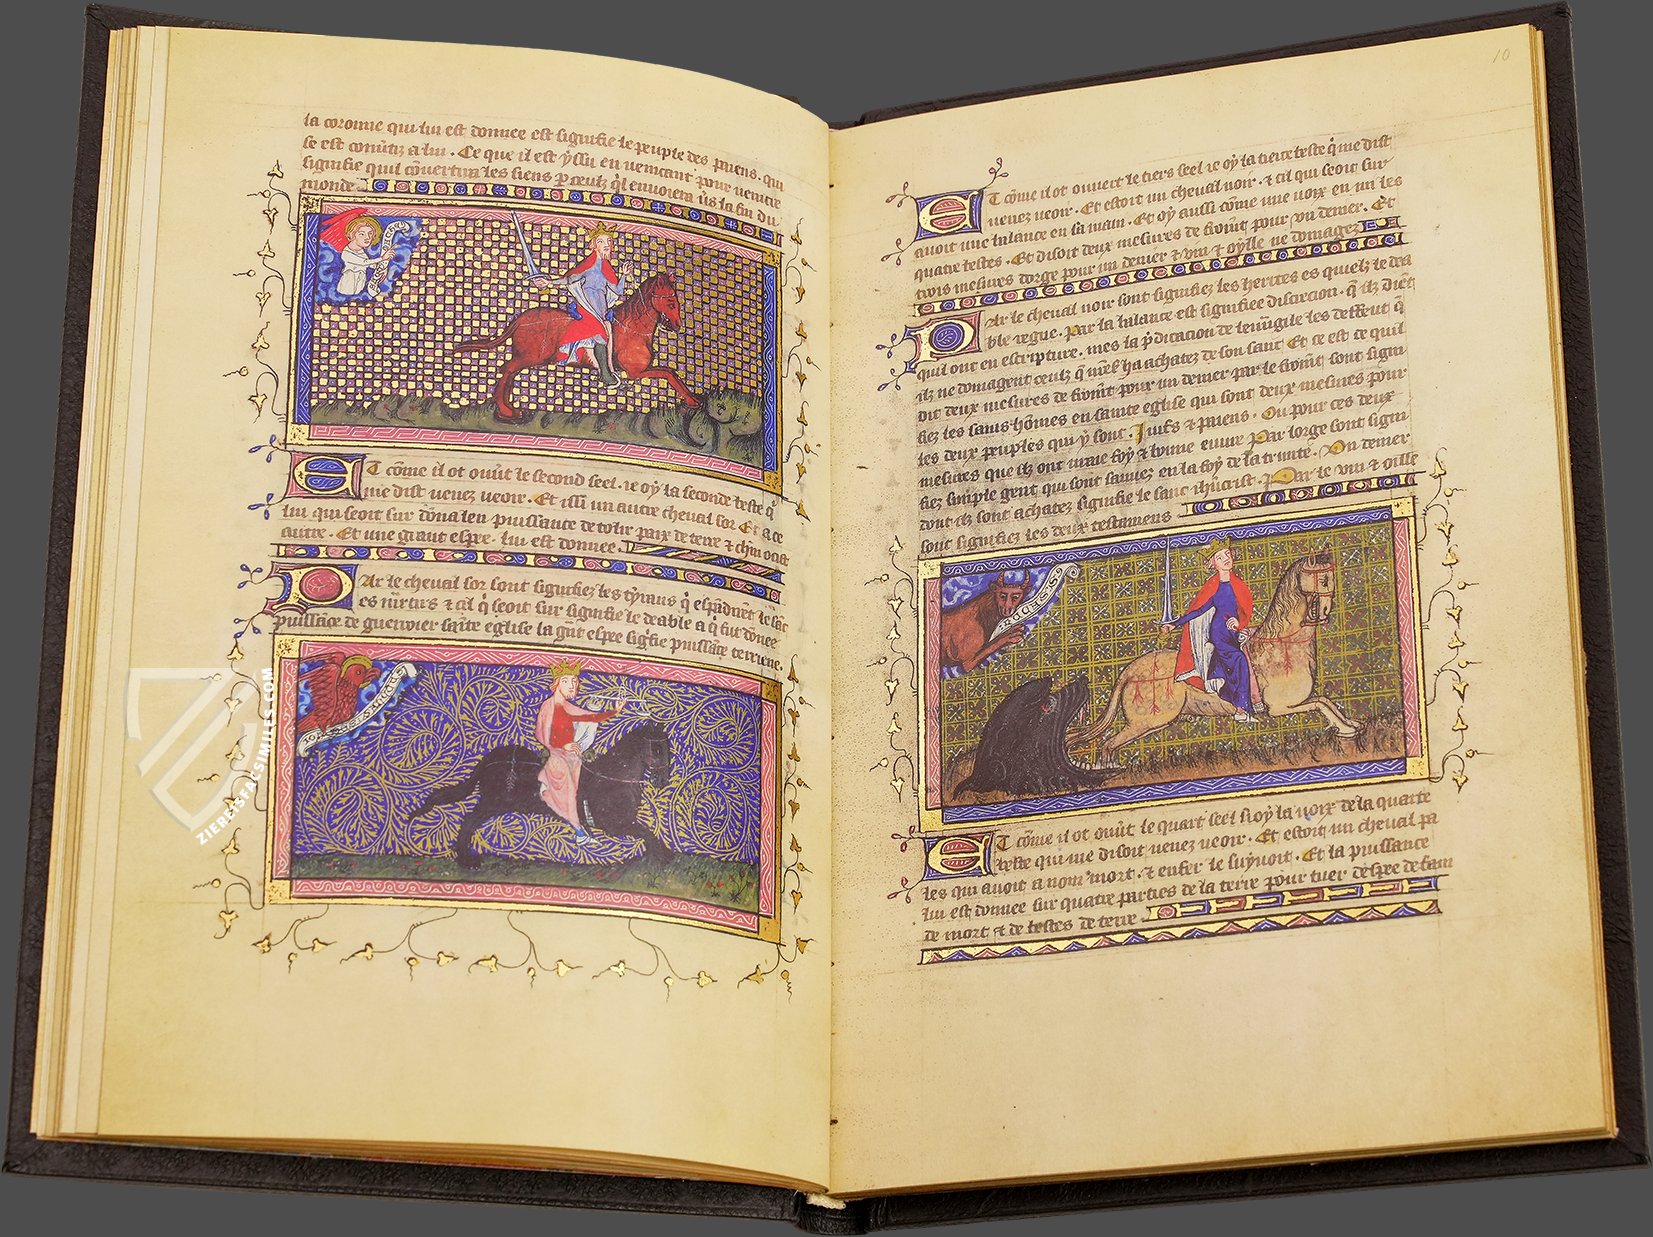 la coronne qui lui est donnee est signifie le peuple des paiens. qui
se est conuti a lui. Ce que il est yssu en uenicant pour ueintre
signifie quil couertira les siens p ceulz ql enuoiera us la fin du
monde
Et come il ot ouut le second seel. ie oy la seconde beste q
me dist uenez ueoir. Et issu un autre cheual sor Et a ce
lui qui seoit sur dona len puissance de tolir paix de terre &
autre. Et une grant espee. lui est donnee.
Par le cheual sor sont signifiez les tyrans q espandent le sac
es martirs & cil q seoit sur signifie le deable a q fut donee
puissace de guerroier sainte eglise la gnt espee signifie puissace terriene.
10
Et come il ot ouuert le tiers seel ie oy la tierce beste q me dist
uenez ueoir. Et estoit un cheual noir. & cil qui seoit sur
auoit une balance en sa main. Et oy aussi come une uoix en mi les
quatre bestes. Et disoit deux mesures de fromt pour un denier. Et
trois mesures dorge pour un denier & uin & oylle ne domagez
Par le cheual noir sont signifiez les herites es quielz le dea
ble regne. Par la balance est signifiee discrecion. q ilz dient
quil ont en escripture. mes la pdicacion de leuuagile les deffent q
ilz ne domagent ceulz q mel ha achatez de son sanc Et ce est ce quil
dit deux mesures de fromt pour un denier par le fromt sont signi
fiez les sains homes en sainte eglise qui sont deux mesures pour
les deux peuples qui y sont. Iuifs & paiens. Ou pour ces deux
mesures que ilz ont uraie foy & bonne euure Par lorge sont signi
fiez simple gent qui sont sauuez en la foy de la trinite. Un denier
dont ilz sont achatez signifie le sanc ihucrist. Par le uin & oille
sont signifiez les deux testamens
Et come il ot ouut le quart seel si oy la uoix de la quarte
beste qui me disoit uenez ueoir. Et estoit un cheual pa
les qui auoit a nom mort. & enfer le suyuoit. Et la puissance
lui est donnee sur quatre parties de la terre pour tuer despee de fam
de mort & de bestes de terre
ZIEREISFACSIMILES.COM